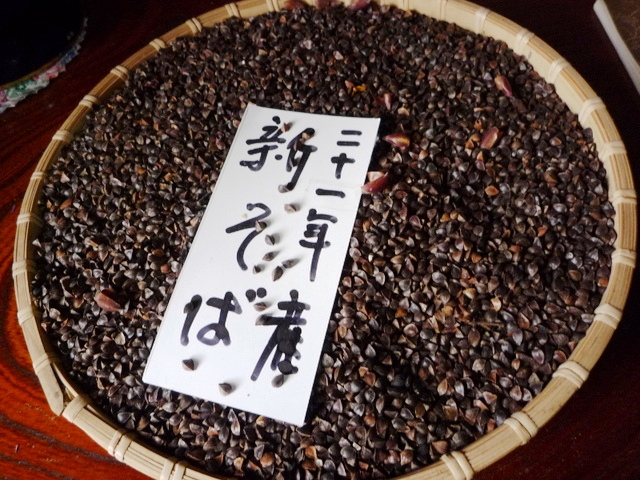 二十一年産
新そば